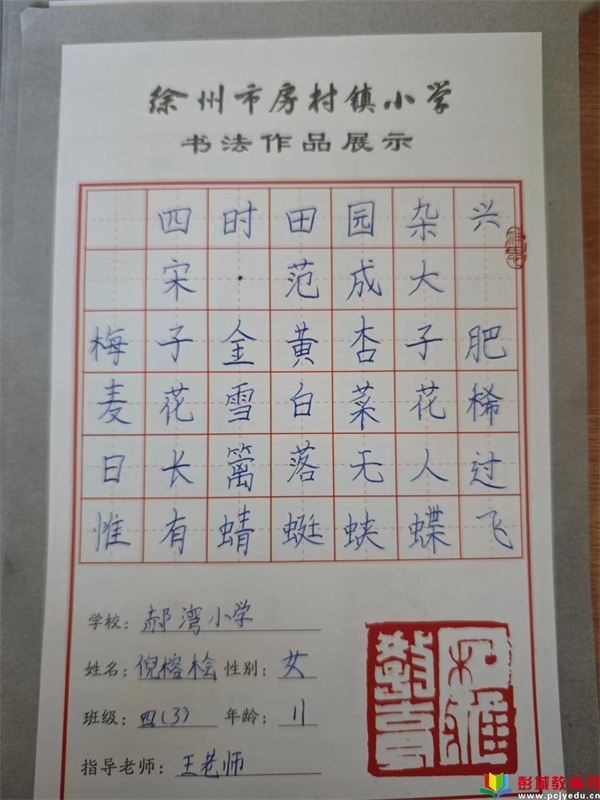 徐州市房村镇小学
书法作品展示
四时田园杂兴
宋·范成大
梅子金黄杏子肥
麦花雪白菜花稀
日长篱落无人过
惟有蜻蜓蛱蝶飞
学校：郝湾小学
姓名：倪榕桧 性别：女
班级：四(3) 年龄：11
指导老师：王老师
彭城教育网
www.pcjyedu.cn